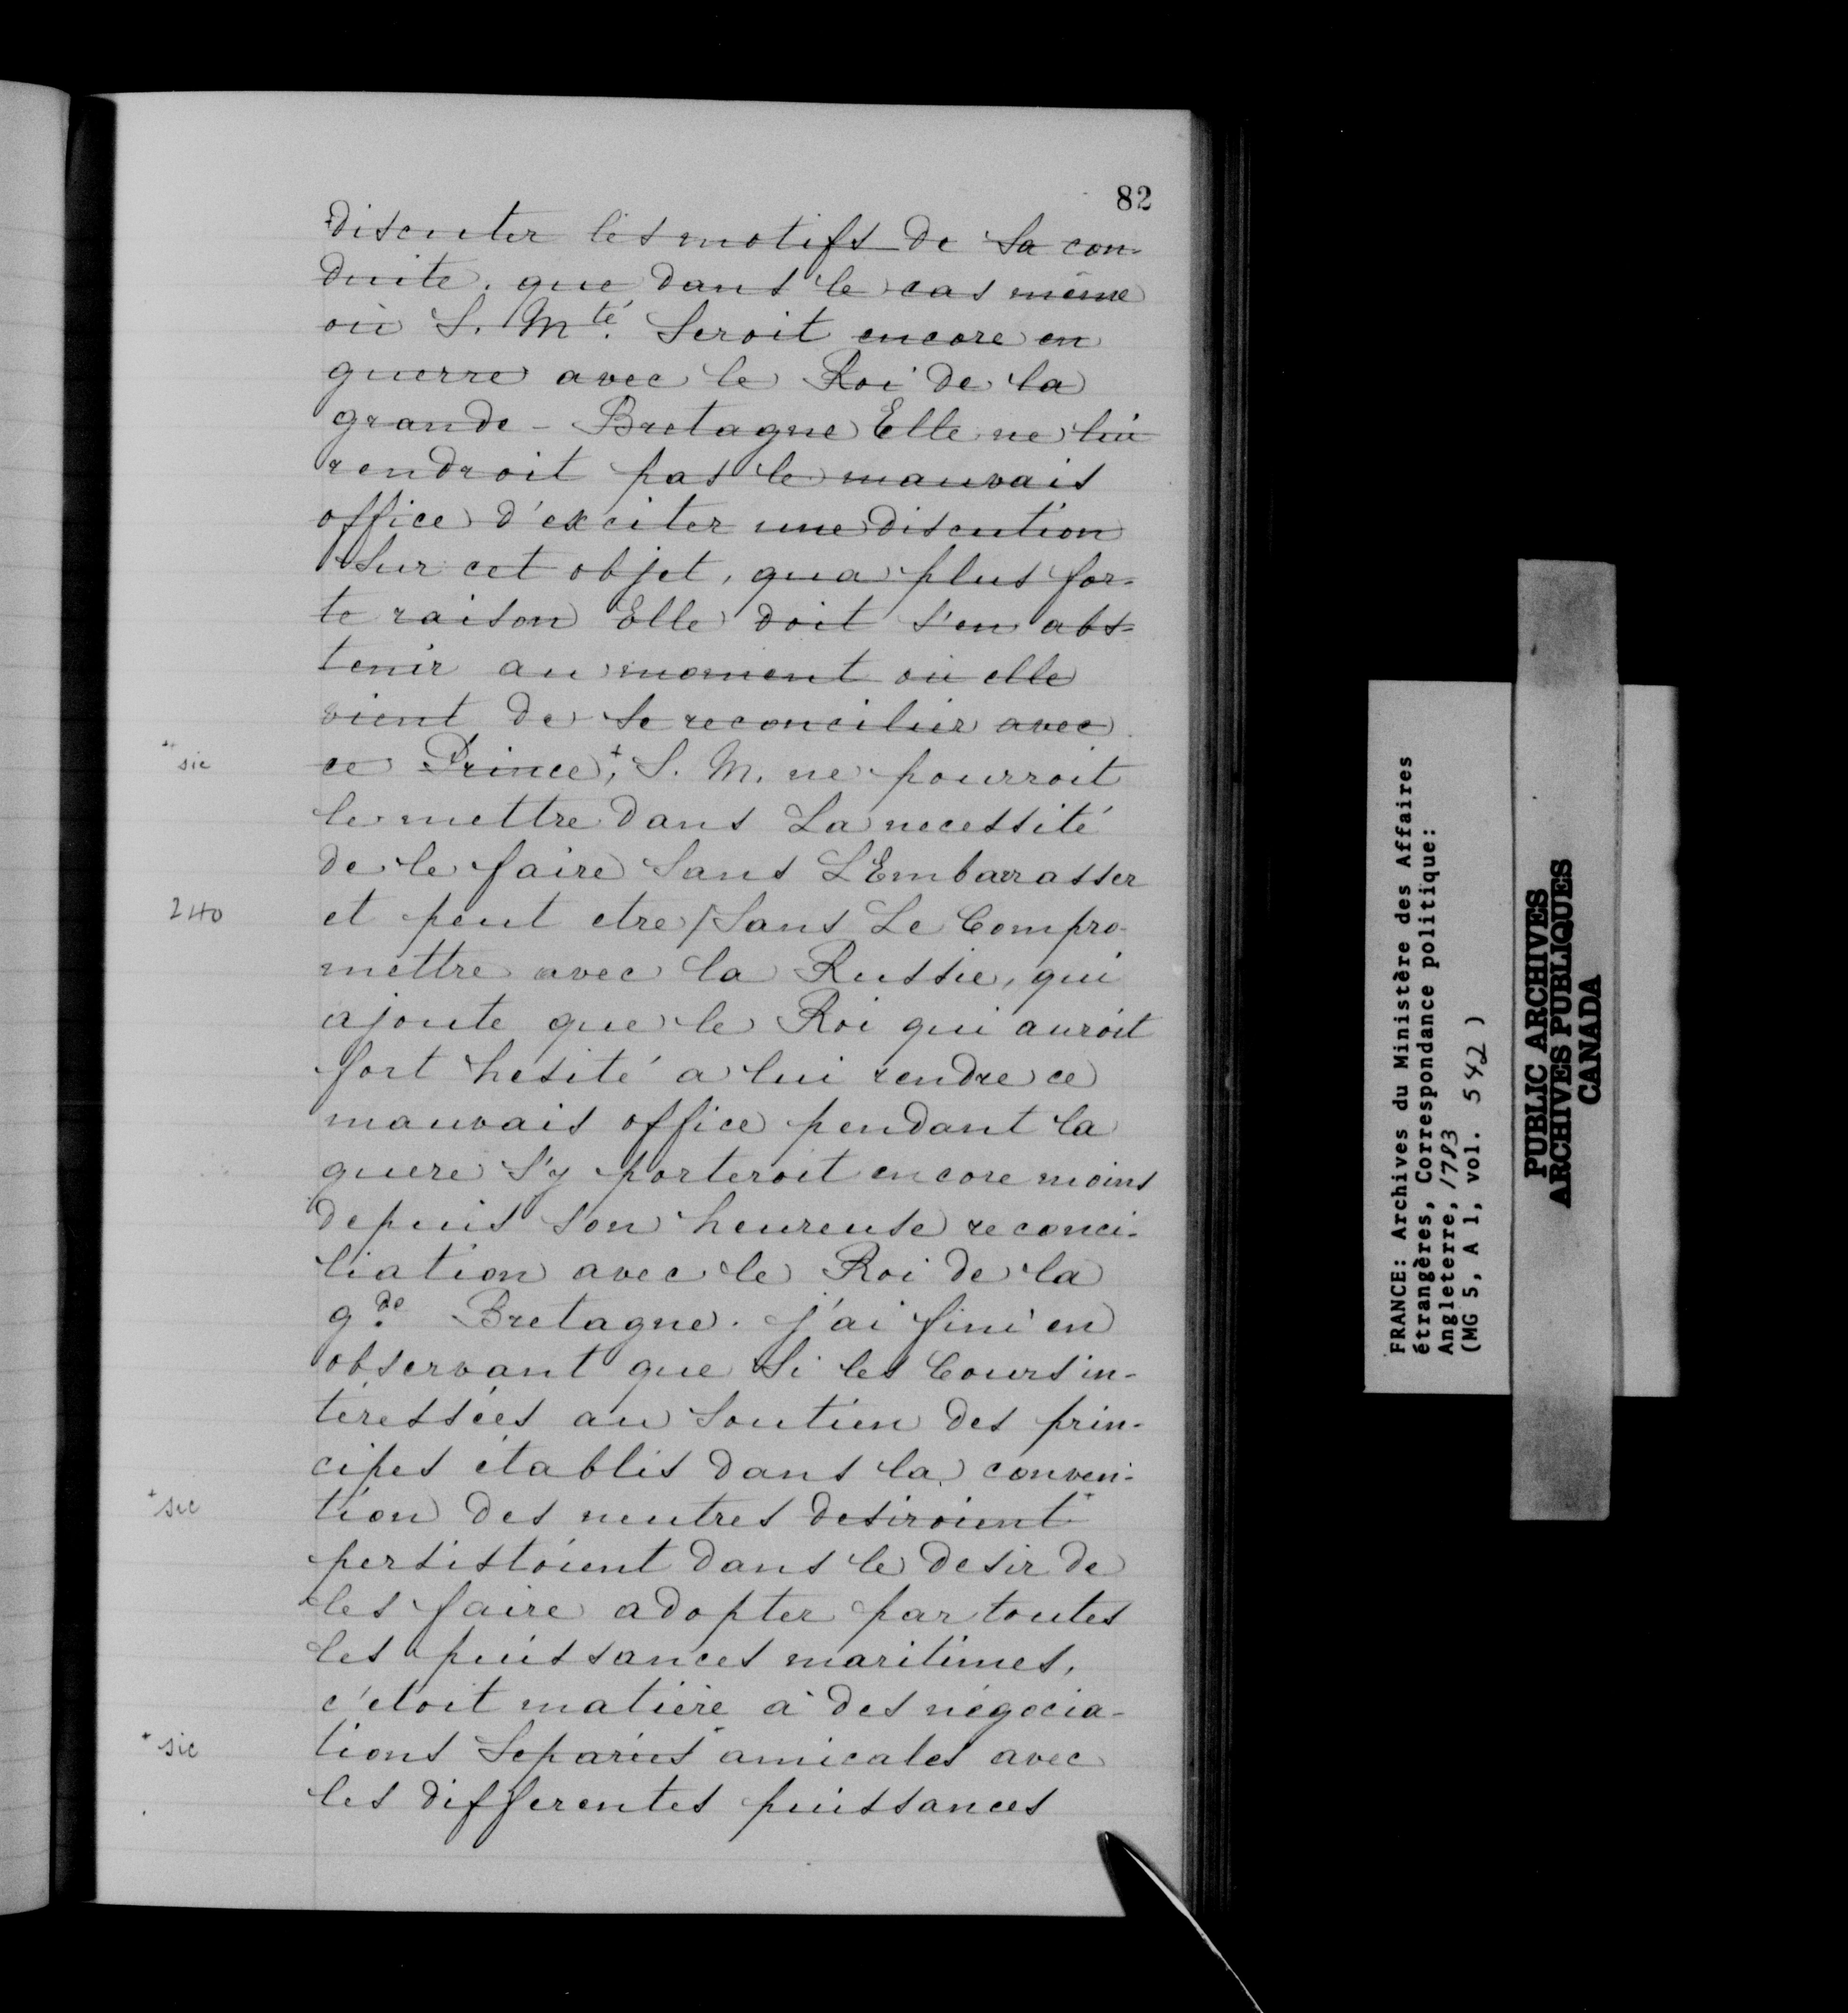 82
discuter les motifs de sa con-
duite, que dans le cas même
où S. Mté. Seroit encore en
guerre avec le Roi de la
grande-Bretagne Elle ne lui
rendroit pas le mauvais
office d'exciter une discution
Sur cet objet, qua plus for-
te raison Elle doit s'en abs-
tenir au moment où elle
vient de se reconcilier avec
+ sic
ce Prince,+ S. M. ne pourroit
le mettre dans La necessité
de le faire Sans L'Embarrasser
240
et peut etre/Sans Le Compro-
mettre avec la Russie, qui
ajoute que le Roi qui auroit
fort hesité a lui rendre ce
mauvais office pendant la
guere S'y porteroit encore moins
depuis son heureuse reconci-
liation avec le Roi de la
gde. Bretagne. j'ai fini en
observant que Si les Cours in-
téressées au Soutien des prin-
cipes établis dans la conven-
+ sic
tion des neutres desiroient+
persistoient dans le desir de
les faire adopter par toutes
les puissances maritimes,
c'etoit matière à des négocia-
+ sic
tions Separées+ amicales avec
les differentes puissances
FRANCE: Archives du Ministère des Affaires
étrangères, Correspondance politique:
Angleterre, 1783
(MG 5, A 1, vol. 542 )
PUBLIC ARCHIVES
ARCHIVES PUBLIQUES
CANADA